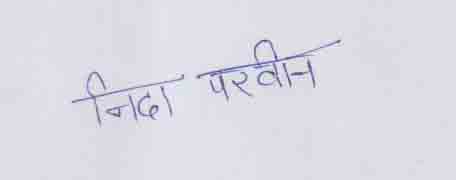 निदा परवीन